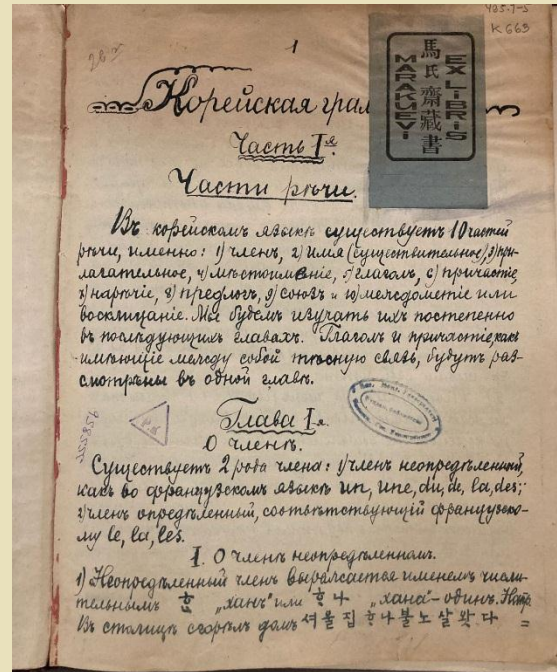 435-7-5
К 663
1
馬氏齋藏書
MARAKUEVI
EX LIBRIS
Корейская грам
Часть Iя.
Части рѣчи.
Въ корейскомъ языкѣ существуетъ 10 частей
рѣчи, именно: 1) членъ, 2) имя (существительное) 3) при-
лагательное, 4) мѣстоименіе, 5) глаголъ, 6) причастіе,
7) нарѣчіе, 8) предлогъ, 9) союзъ и 10) междометіе или
восклицаніе. Мы будемъ изучать ихъ постепенно
въ послѣдующихъ главахъ. Глаголъ и причастіе, какъ
имѣющіе между собой тѣсную связь, будутъ раз-
смотрѣны въ одной главѣ.
Глава Iя.
О членѣ.
Существуетъ 2 рода члена: 1) членъ неопредѣленный,
какъ во французскомъ языкѣ un, une, du, de, la, des;
2) членъ опредѣленный, соотвѣтствующій французско-
му le, la, les.
I. О членѣ неопредѣленномъ.
1) Неопредѣленный членъ выражается именемъ числи-
тельнымъ ᄒᆞᆫ „ханъ" или ᄒᆞ나 „хана" – одинъ. Напр.
Въ столицѣ сгорѣлъ домъ 셔울집ᄒᆞ나불노살왓다 =